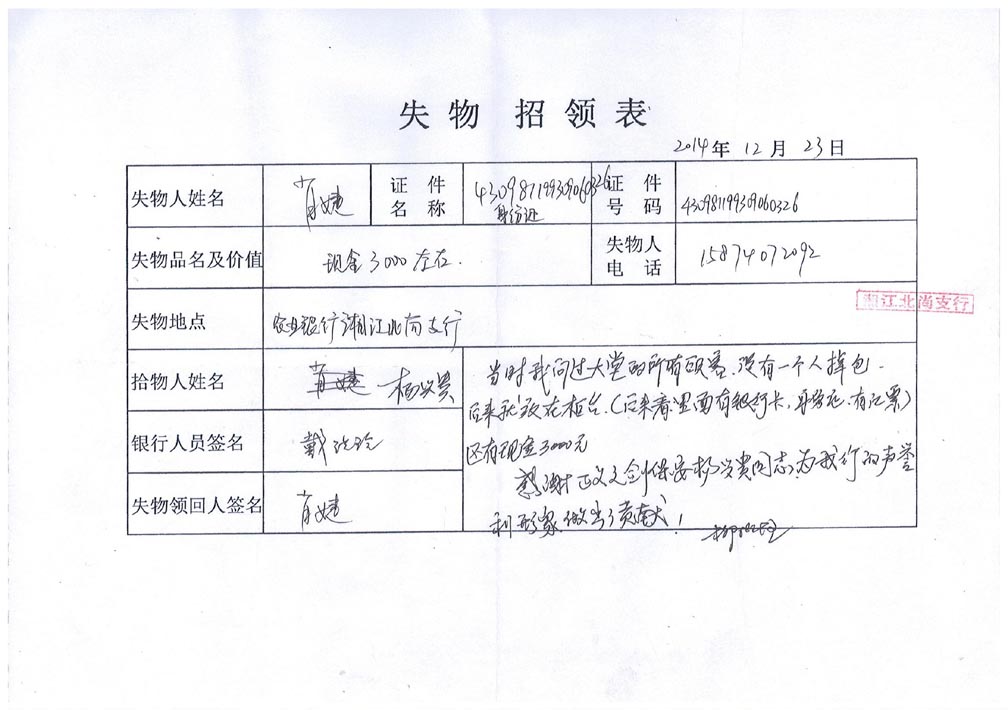 失物 招领表
2014年 12月 23日
失物人姓名 肖婕 证件名称 430981199309060326 身份证 证件号码 430981199309060326
失物品名及价值 现金3000左右. 失物人电话 15874072092
湘江北尚支行
失物地点 农业银行湘江北尚支行
拾物人姓名 肖婕 杨兴贵
当时我问过大堂的所有顾客、没有一个人掉包.
后来我放在柜台.(后来看里面有银行卡,身份证,有江票)
银行人员签名 戴
还有现金3000元
感谢正义之剑保安杨兴贵同志,为我行的声誉
失物领回人签名 肖婕
和形象做出了贡献!